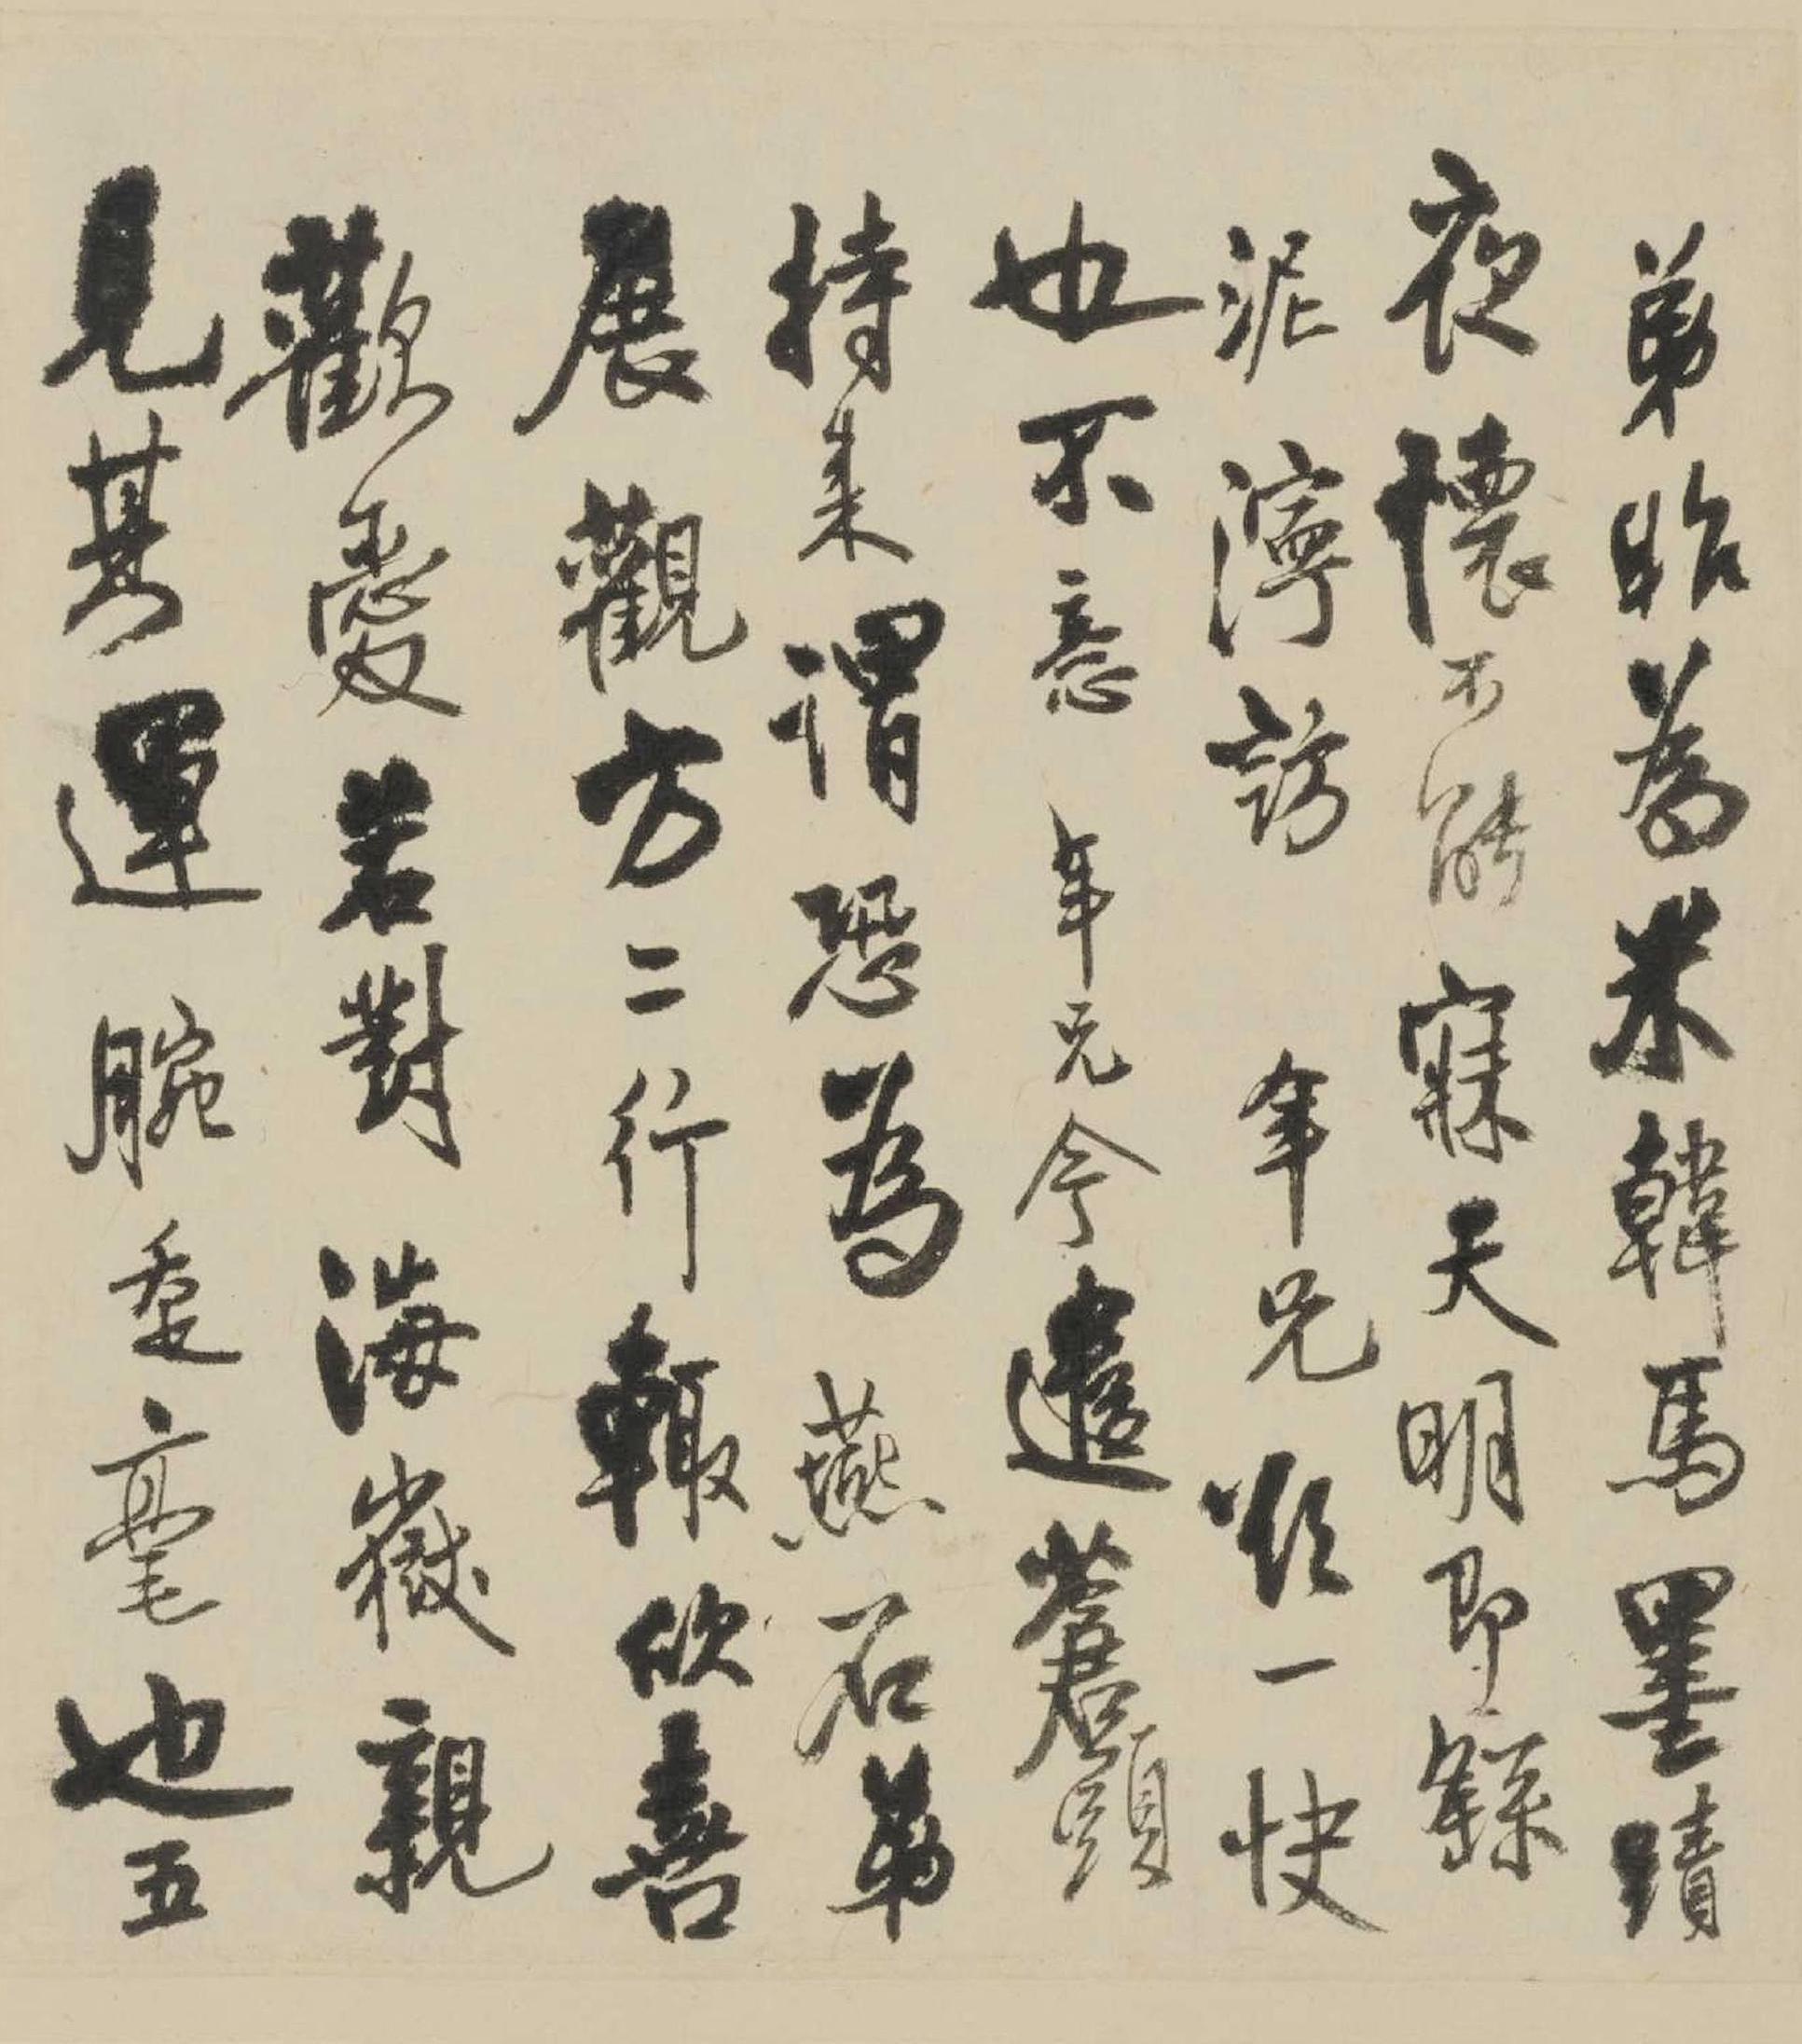 弟昨為米韓馬墨蹟
夜懷不能寐天明即繇
泥濘訪年兄願一快
也不意年兄今遣蒼頭
持來謂恐為燕石弟
展觀方二行輙欣喜
歡愛若對海嶽親
見其運腕垂毫也五